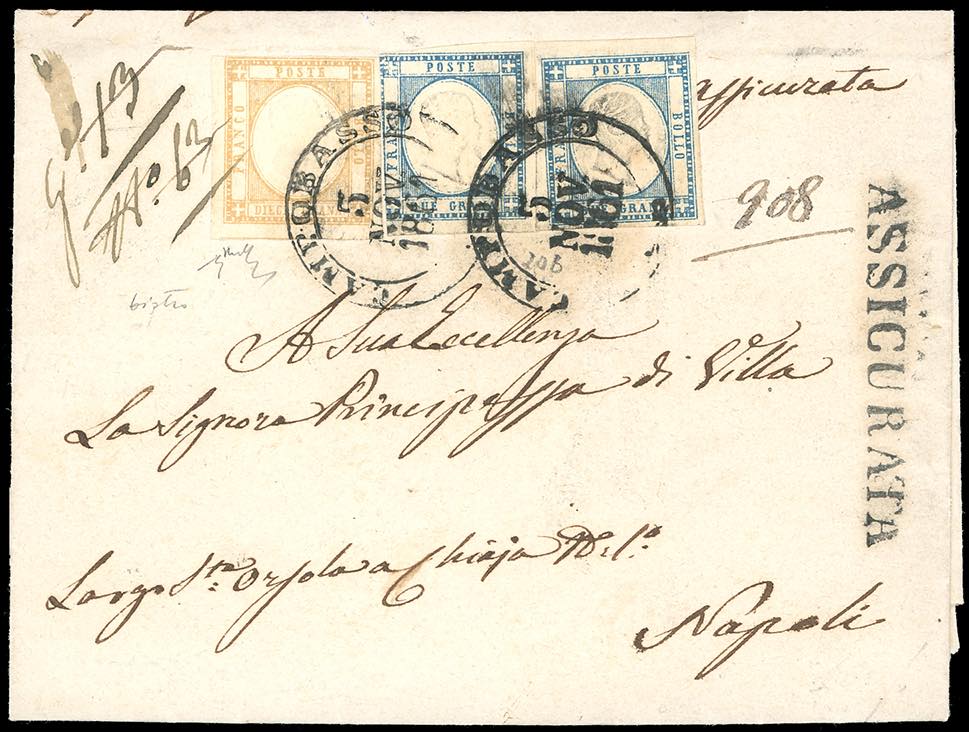 POSTE
FRANCO
BOLLO
DIECI
POSTE
FRANCO
DUE GRANA
POSTE
FRANCO
BOLLO
GRANA
CAMPOBASSO
5
NOV
1861
CAMPOBASSO
5
NOV
1861
assicurata
No. 63
908
ASSICURATA
bistro
A Sua Eccellenza
La Signora Principessa di Villa
Largo Sta. Orsola a Chiaja No. 1o.
Napoli